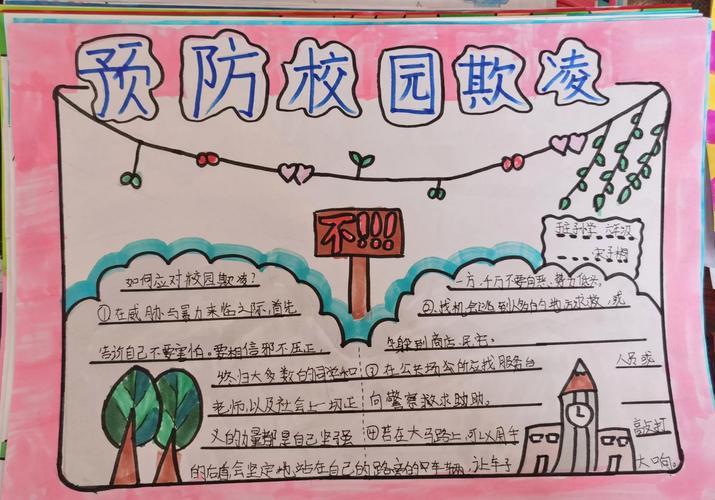 预防校园欺凌
不!!!
小学 六年级
如何应对校园欺凌?
①在威胁与暴力来临之际,首先
告诉自己不要害怕。要相信邪不压正,
终归大多数的同学和
老师,以及社会上一切正
义的力量都是自己坚强
的后盾会坚定地站在自己的
一方,千万不要
②找机会 到人多的地方求救,或
躲到商店、民宅。
③在公共场合应找服务台 人员或
向警察 求助助。
④若在大马路上,可以用车
车辆,让车子